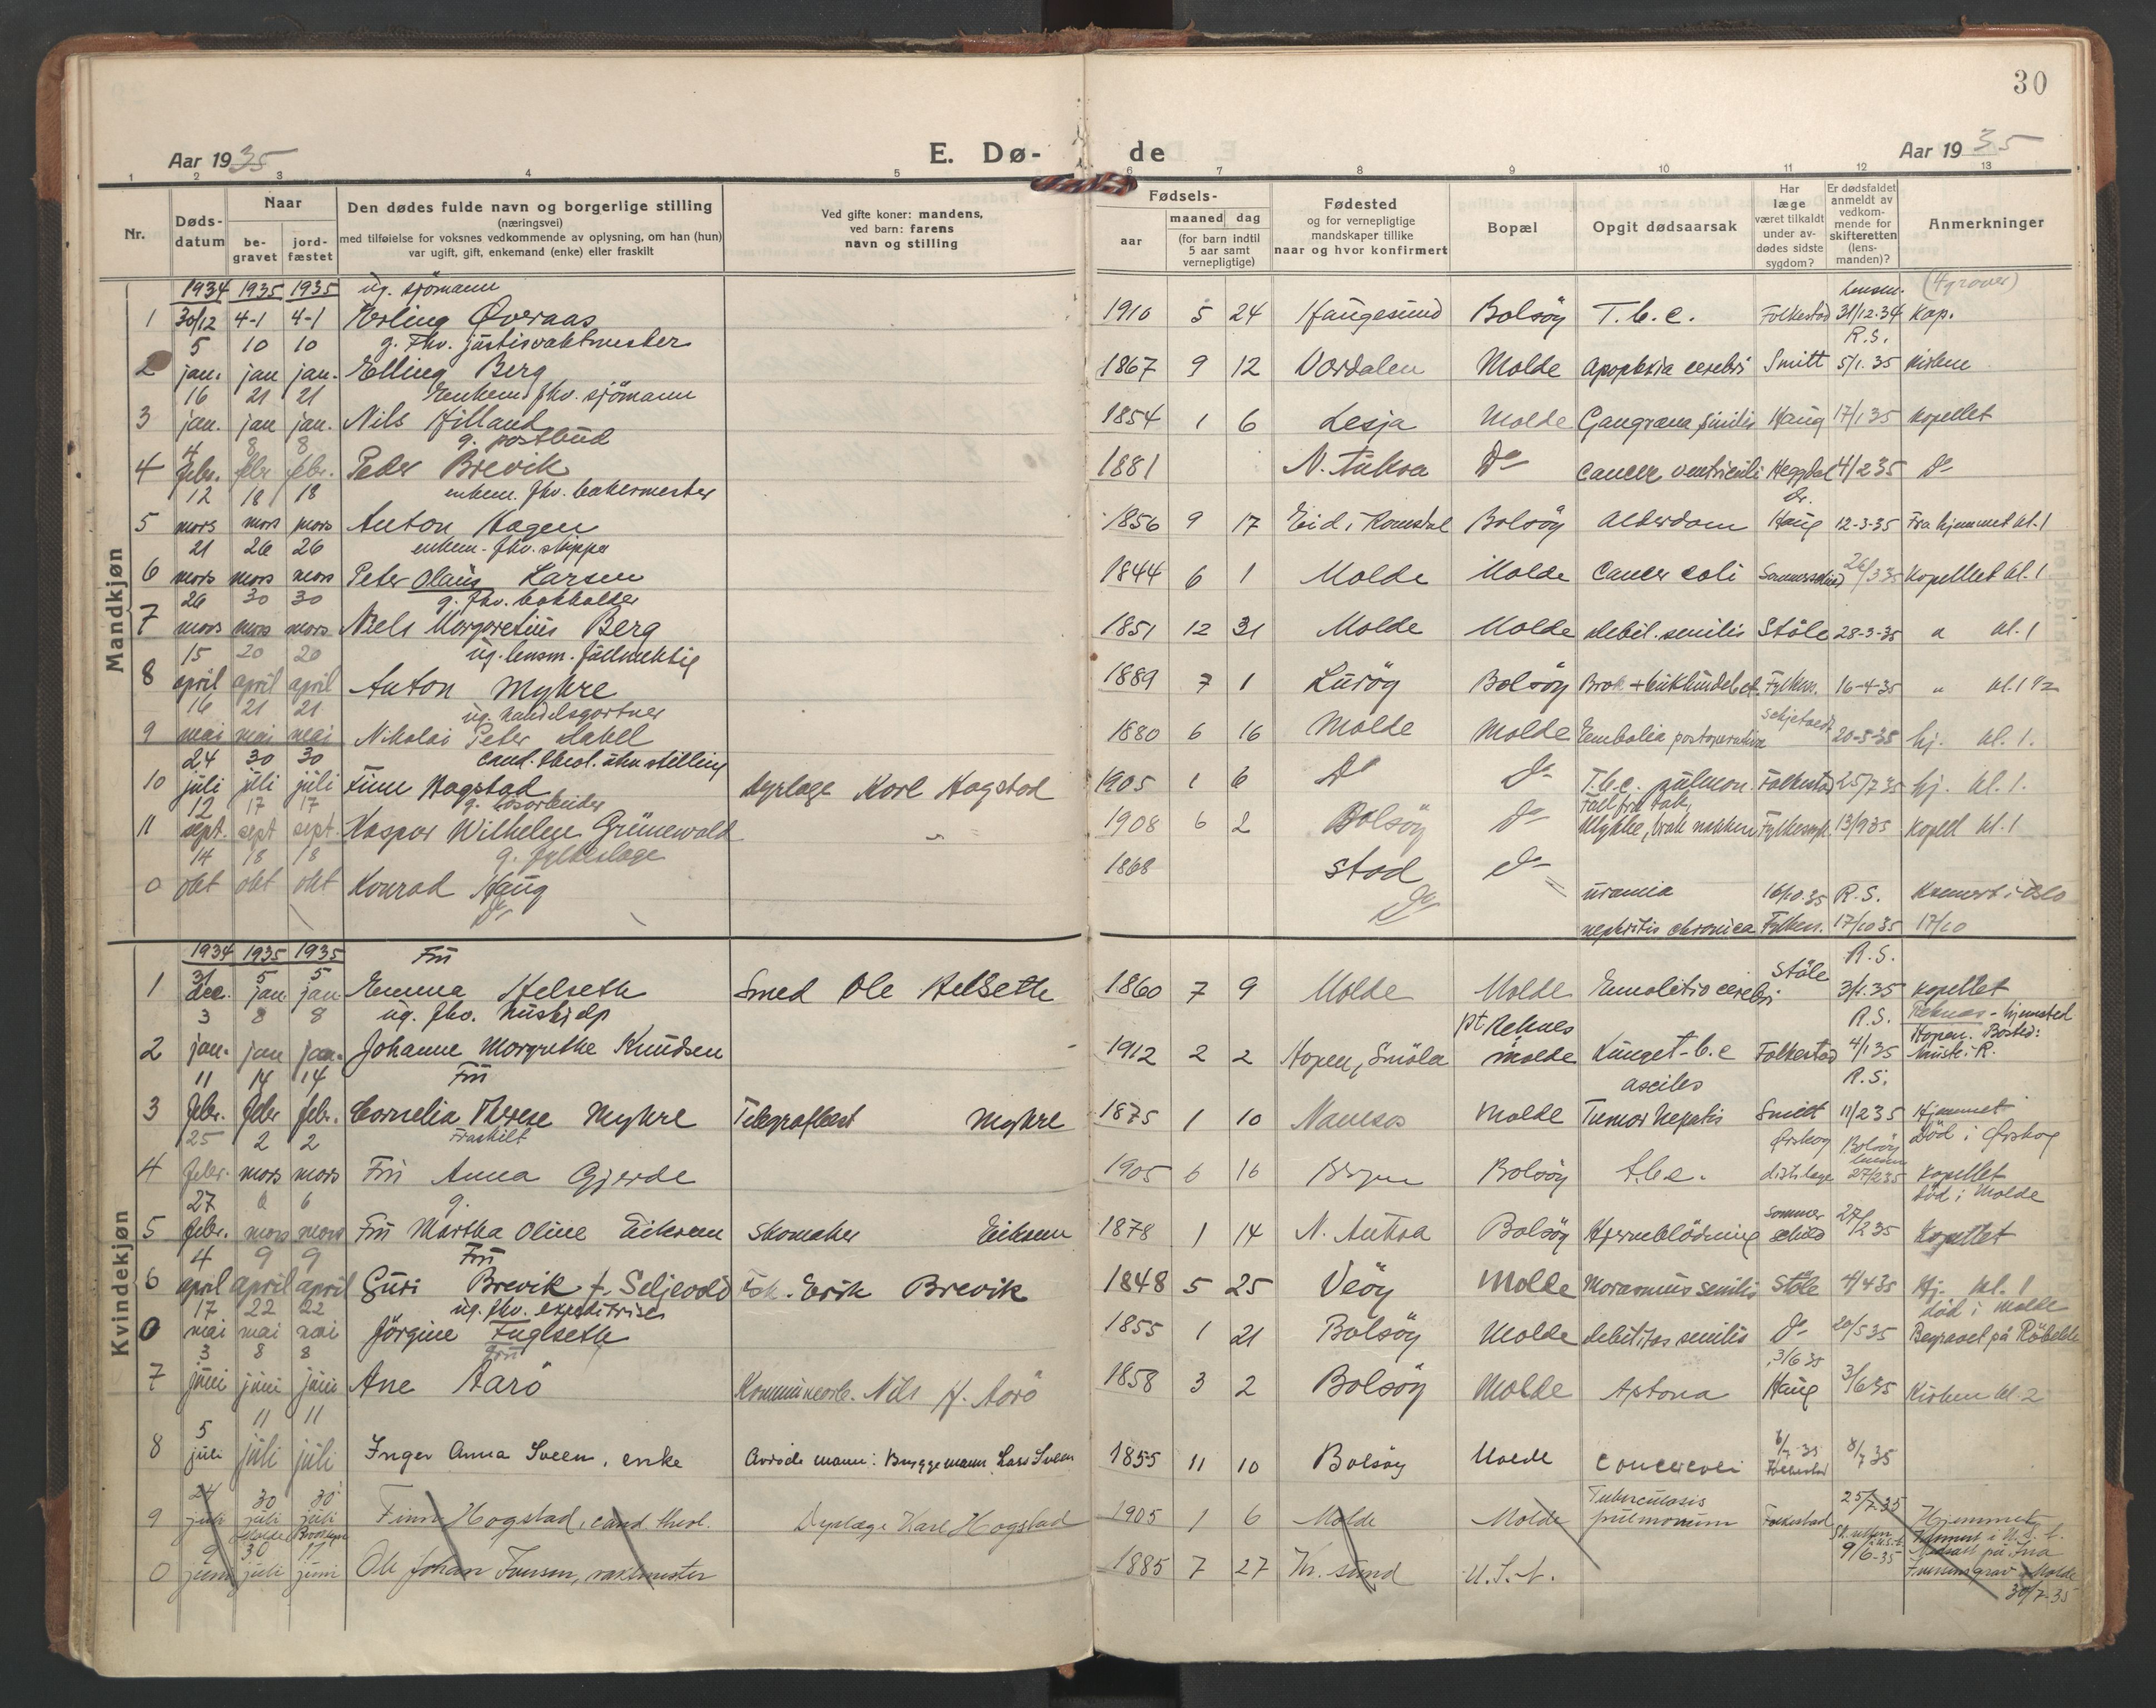 30
Aar 1935
E. Dø- de
Aar 1935
1 2 3 4 5 6 7 8 9 10 11 12 13
Nr.
Døds-datum
Naar
be-gravet
jord-fæstet
Den dødes fulde navn og borgerlige stilling
(næringsvei)
med tilføielse for voksnes vedkommende av oplysning, om han (hun)
var ugift, gift, enkemand (enke) eller fraskilt
Ved gifte koner: mandens,
ved barn: farens
navn og stilling
Fødsels-
aar
maaned dag
(for barn indtil
5 aar samt
vernepligtige)
Fødested
og for vernepligtige
mandskaper tillike
naar og hvor konfirmert
Bopæl
Opgit dødsaarsak
Har
læge
været tilkaldt
under av-
dødes sidste
sygdom?
Er dødsfaldet
anmeldt av
vedkom-
mende for
skifteretten
(lens-
manden)?
Anmerkninger
Mandkjøn
1934 1935 1935 ug. sjömann lensm. (4 prøver)
1 30/12 4-1 4-1 Erling Øveraas 1910 5 24 Haugesund Bolsöy T.b.c. Folkestad 31/12-34 Kap.
5 10 10 g. fhv. justisvaktmester R.S.
2 jan. jan jan. Elling Berg 1867 9 12 Vordalen Molde apoplexia cerebri Smitt 5/1.35 kirken
16 21 21 Enkem. fhv. sjömann
3 jan. jan jan. Nils Hilland 1854 1 6 Lesja Molde Gangræna senilis Haug 17/1 35 kapellet
4 8 8 g. postbud
4 febr. febr febr. Peder Brevik 1881 N. Aukra Do cancer ventriculi Heggdal 4/2 35 Do
12 18 18 enkem. fhv. bakermester dr.
5 mars mars mars Anton Hagen 1856 9 17 Eid i Romsdal Bolsöy Alderdom Haug 12-3-35 Fra hjemmet kl. 1
21 26 26 enkem. fhv. skipper
6 mars mars mars Peter Olaüs Larsen 1844 6 1 Molde Molde Cancer coli Sommerschild 26/3 35 Kapellet kl. 1
26 30 30 g. fhv. bokholder
7 mars mars mars Niels Margretius Berg 1851 12 31 Molde Molde debil. senilis Ståle 28-3-35 " kl. 1
15 20 20 ug. lensm. fullmektig
8 april april april Anton Myhre 1889 7 1 Luröy Bolsöy Brok + Fylkess. 16-4-35 " kl. 1 1/2
16 21 21 ug. handelsgartner
9 mai mai mai Nikolai Peter Dahl 1880 6 16 Molde Molde Embolia postoperativa 20-5-35 hj. kl. 1.
24 30 30 cand. theol. uten stilling
10 juli juli juli Finn Hagstad Dyrlæge Karl Hagstad 1905 1 6 Do Do T.b.c. pulmon. Folkestad 25/7 35 hj. kl. 1.
12 17 17 g. løsarbeider Fall fra tak,
11 sept. sept sept. Kaspar Wilhelm Grünewald " 1908 6 2 Bolsöy Do ulykke, brak nakken Fylkessyk. 13/9 35 kapell kl. 1
14 18 18 g. fylkeslæge
0 okt okt okt Konrad Haug 1868 Stad Do uramia 16/10.35 R.S. Kremert i Oslo
nephritis chronica Fylkess. 17/10 35 17/10
Kvindekjøn
1934 1935 1935 Fru R.S.
1 31 dec. 5 jan 5 jan Emma Helseth Smed Ole Helseth 1860 7 9 Molde Molde Emolitio cerebri Ståle 3/1.35 kapellet
3 8 8 ug. fhv. hushjelp pt Reknes R.S. Reknes - hjemsted
2 jan. jan jan. Johanne Margrethe Knudsen 1912 2 2 Hopen, Smöla molde Lunget.b.c Folkestad 4/1 35 Hopen. Bosted:
11 14 14 Fru ascites R.S.
3 febr. febr febr. Cornelia Therese Myhre Telegrafbest Myhre 1875 1 10 Namsos Molde Tumor hepatis Smitt 11/2 35 Hjemmet
25 2 2 Fraskilt Ørskog Bolsöy Död i Ørskog
4 febr. mars mars Fru Anna Gjerde 1905 6 16 Bergen Bolsöy t.b.c. distr.læge lensm 27/2 35 kapellet
27 6 6 g. död i Molde
5 febr. mars mars Fru Martha Oline Eriksen Skomaker Eriksen 1878 1 14 N. Aukra Bolsöy Hjerneblödning Sommerschild 27/2 35 Kapellet
4 9 9 Fru
6 april april april Guri Brevik f. Seljevold Erik Brevik 1848 5 25 Veöy Molde Marasmus senilis Ståle 4/4 35 Hj. kl. 1
17 22 22 ug. fhv. expeditrise död i molde
0 mai mai mai Jörgine Fuglseth 1855 1 21 Bolsöy Molde debilitas senilis Do 20/5 35 Begravet på Röbekk
3 8 8 Fru 3/6 35
7 juni juni juni Ane Aarö Kommunearb. Nils H. Aarö 1858 3 2 Bolsöy Molde Haug 3/6 35 Kirken kl. 2
5 11 11
8 juli juli juli Inger Anna Sveen, enke Avdöde mann: Bryggemann Lars Sveen 1855 11 10 Bolsöy Molde Cancer coli Folkestad 8/7 35
24 30 30 Tuberculosis 25/7-35
9 juli juli juli Finn Hogstad, cand. theol. Dyrlæge Karl Hogstad 1905 1 6 Molde Molde pulmonum Folkestad Hjemmet
Molde Brooklyn
9 30 17 Kremert i U.S.A.
0 juni juli juni Ole Johan Iversen, vaktmester 1885 7 27 Kr. sund U.S.A. 9/6-35 Nedsatt på
Molde
30/7-35